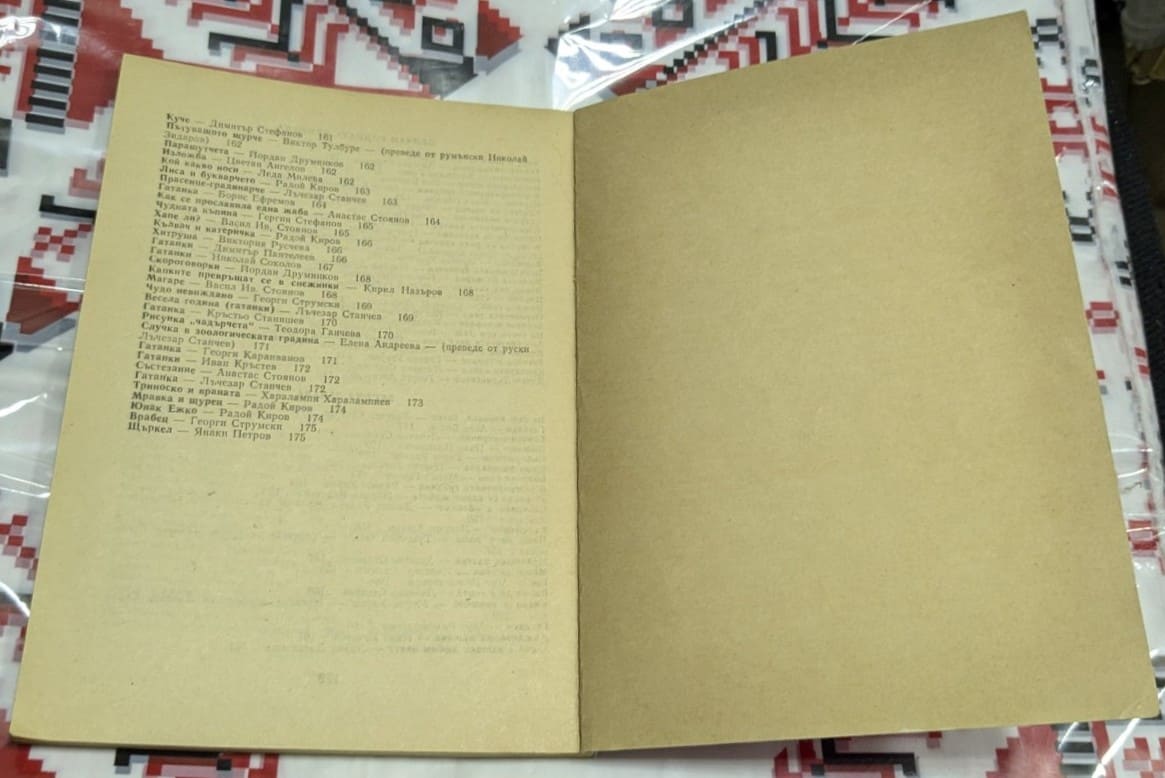 Куче — Димитър Стефанов 161
Пътуващото щурче — Виктор Тулбуре — (преведе от румънски Николай
Зидаров) 162
Парашутчета — Йордан Друмников 162
Изложба — Цветан Ангелов 162
Кой какво носи — Леда Милева 162
Лиса и букварчето — Радой Киров 163
Прасенце-градинарче — Лъчезар Станчев 163
Гатанка — Борис Ефремов 164
Как се прославила една жаба — Анастас Стоянов 164
Чудната къпина — Георги Стефанов 165
Хапе ли? — Васил Ив. Стоянов 165
Кълвач и катеричка — Радой Киров 166
Хитруша — Виктория Русчева 166
Гатанки — Димитър Пантелеев 166
Гатанки — Николай Соколов 167
Скороговорки — Йордан Друмников 168
Капките превръщат се в снежинки — Кирил Назъров 168
Магаре — Васил Ив. Стоянов 168
Чудо невиждано — Георги Струмски 169
Весела година (гатанки) — Лъчезар Станчев 169
Гатанка — Кръстьо Станишев 170
Рисунка „чадърчета“ — Теодора Ганчева 170
Случка в зоологическата градина — Елена Андреева — (преведе от руски
Лъчезар Станчев) 171
Гатанка — Георги Караиванов 171
Гатанки — Иван Кръстев 172
Състезание — Анастас Стоянов 172
Гатанка — Лъчезар Станчев 172
Триноско и враната — Харалампи Харалампиев 173
Мравка и щурец — Радой Киров 174
Юнак Ежко — Радой Киров 174
Врабец — Георги Струмски 175
Щъркел — Янаки Петров 175